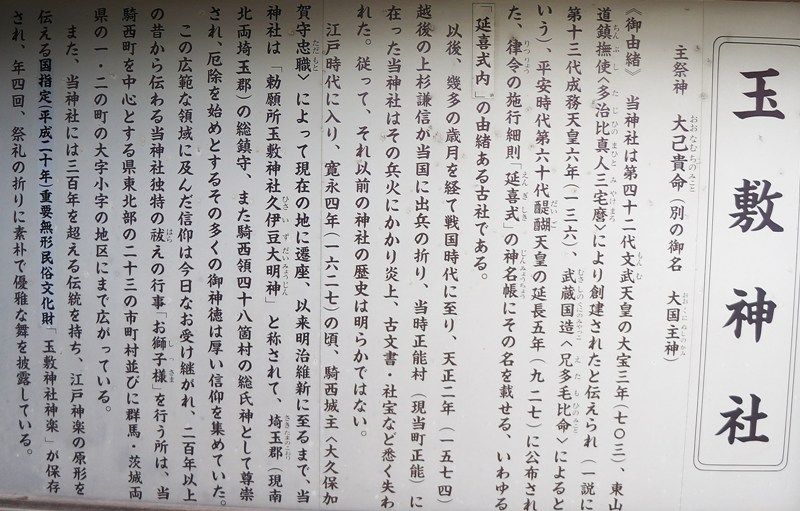 玉敷神社
主祭神 大己貴命(別の御名 大国主神)
《御由緒》 当神社は第四十二代文武天皇の大宝三年(七〇三)、東山
道鎮撫使〈多治比真人三宅麿〉により創建されたと伝えられ(一説に
第十三代成務天皇六年(一三六)、武蔵国造〈兄多毛比命〉によると
いう)、平安時代第六十代醍醐天皇の延長五年(九二七)に公布され
た、律令の施行細則「延喜式」の神名帳にその名を載せる、いわゆる
「延喜式内」の由緒ある古社である。
以後、幾多の歳月を経て戦国時代に至り、天正二年(一五七四)
越後の上杉謙信が当国に出兵の折り、当時正能村(現当町正能)に
在った当神社はその兵火にかかり炎上、古文書・社宝など悉く失わ
れた。従って、それ以前の神社の歴史は明らかではない。
江戸時代に入り、寛永四年(一六二七)の頃、騎西城主〈大久保加
賀守忠職〉によって現在の地に遷座、以来明治維新に至るまで、当
神社は「勅願所玉敷神社久伊豆大明神」と称されて、埼玉郡(現南
北両埼玉郡)の総鎮守、また騎西領四十八箇村の総氏神として尊崇
され、厄除を始めとするその多くの御神徳は厚い信仰を集めていた。
この広範な領域に及んだ信仰は今日なお受け継がれ、二百年以上
の昔から伝わる当神社独特の祓えの行事「お獅子様」を行う所は、当
騎西町を中心とする県東北部の二十三の市町村並びに群馬・茨城両
県の一・二の町の大字小字の地区にまで広がっている。
また、当神社には三百年を超える伝統を持ち、江戸神楽の原形を
伝える国指定(平成二十年)重要無形民俗文化財「玉敷神社神楽」が保存
され、年四回、祭礼の折りに素朴で優雅な舞を披露している。